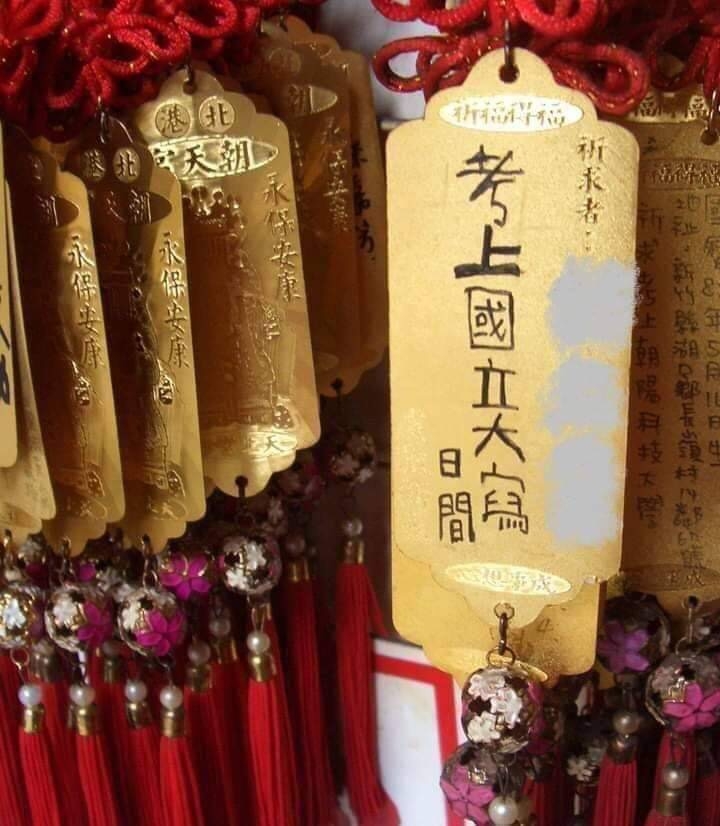 北港
朝天宮
永保安康
永保安康
永保安康
祈福得福
祈求者：
考上國立大寫
日間
心想事成
祈福得福
地址：新竹縣湖口鄉長嶺村
祈求考上朝陽科技大學